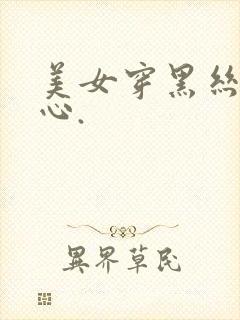 美女穿黑絲
心.
異界草民